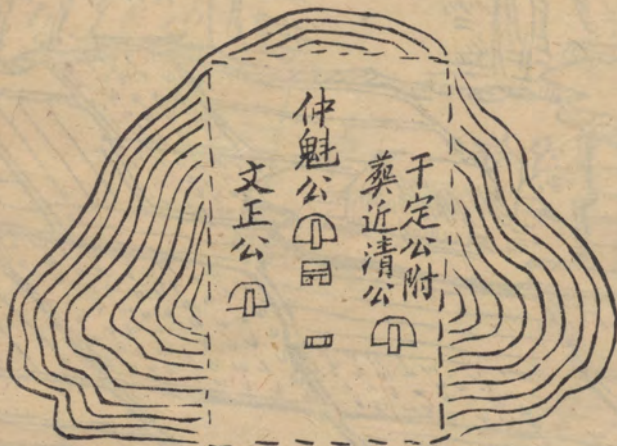 干定公附
葬近清公
仲魁公
文正公